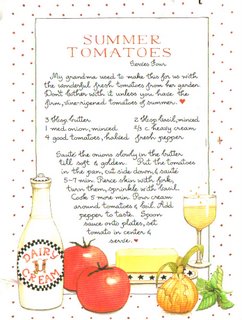 SUMMER
TOMATOES
Serves Four
My grandma used to make this for us with
the wonderful fresh tomatoes from her garden.
Don't bother with it unless you have the
firm, vine-ripened tomatoes of summer. ♥
3 tbsp. butter 2 tbsp. basil, minced
1 med. onion, minced 2/3 c. heavy cream
4 good tomatoes, halved fresh pepper
Sauté the onions slowly in the butter
till soft & golden. Put the tomatoes
in the pan, cut side down, & sauté
5-7 min. Pierce skin with fork,
turn them, sprinkle with basil.
Cook 5 more min. Pour cream
around tomatoes & boil. Add
pepper to taste. Spoon
sauce onto plates, set
tomato in center &
serve. ♥
DAIRY
CREAM